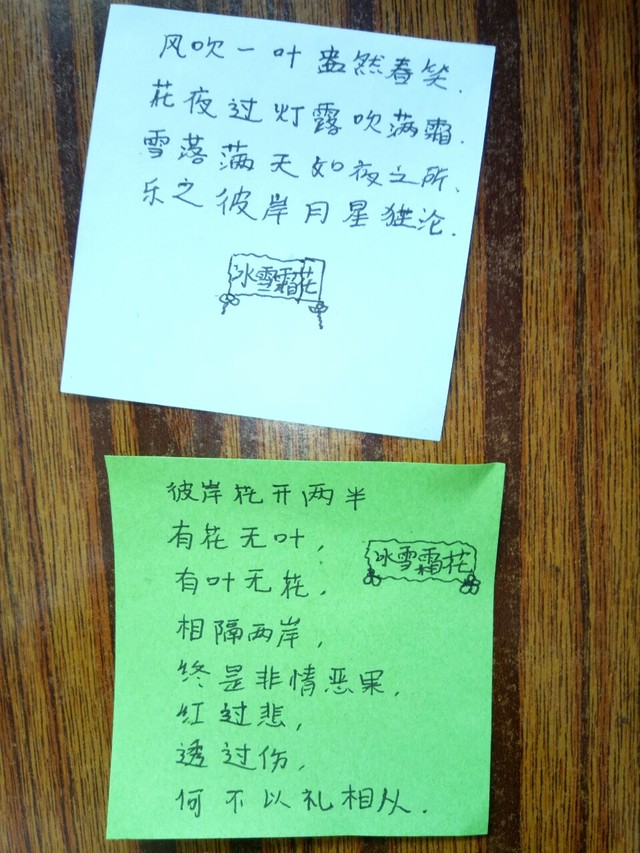 风吹一叶盎然春笑.
花夜过灯露吹满霜.
雪落满天如夜之所、
乐之彼岸月星推沦.
冰雪霜花
彼岸花开两半
有花无叶，
冰雪霜花
有叶无花，
相隔两岸，
终是非情恶果，
红过悲，
透过伤，
何不以礼相从.